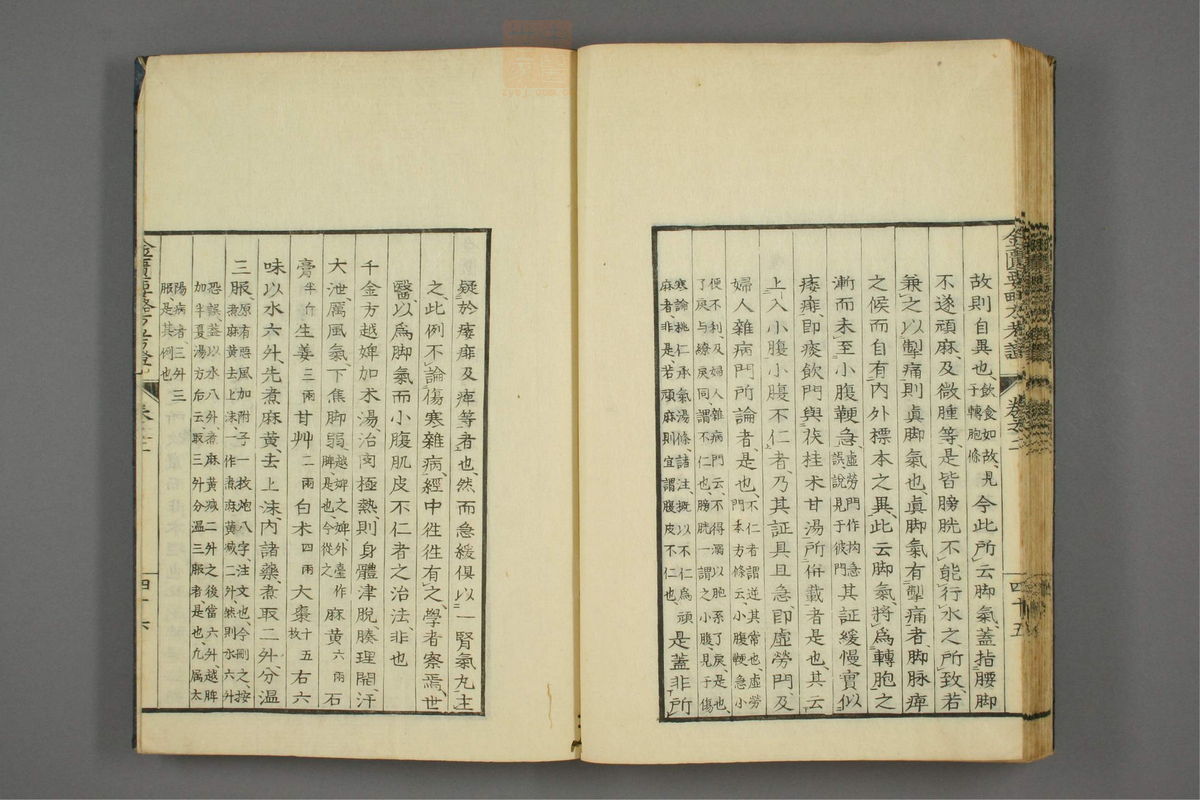 故則自異也、飲食如故、見子轉胞條今此所云脚氣、蓋指腰脚
不遂頑麻、及微腫等、是皆膀胱不能行水之所致、若
兼之以掣痛、則眞脚氣也、眞脚氣有掣痛者、脚脉痺
之候、而自有内外標本之異、此云脚氣將爲轉胞之
漸、而未至小腹鞕急、虛勞門作拘急誤說見于彼門其証緩慢、實似
痿痱、即痰飲門與茯桂术甘湯所併載者是也、其云
上入小腹、小腹不仁者、乃其証具且急、即虛勞門、及
婦人雜病門所論者是也、不仁者謂逆其常也、虛勞門本方條云、小腹鞕急、小
便不利、及婦人雜病門云、不得溺、以胞系了戾是也、了戾与繚戾同、謂不仁也、膀胱一謂之小腹、見于傷
寒論桃仁承氣湯條、諸注概以不仁爲頑麻者、非是、若頑麻則宜謂腹皮不仁也、是蓋非所
疑於痿痱及痺等者也、然而急緩俱以一腎氣丸主
之、此例不論傷寒雜病、經中往往有之、學者察焉、世
醫以爲脚氣而小腹肌皮不仁者之治法、非也
千金方越婢加术湯、治肉極熱、則身體津脫、腠理開、汗
大泄、厲風氣、下焦脚弱、越婢之婢、外臺作脾是也、今從之麻黃六兩石
膏半斤生姜三兩甘艸二兩白术四兩大棗十五枚右六
味、以水六升、先煮麻黃、去上沫、内諸藥、煮取二升、分温
三服、原有惡風加附子一枚炮八字、注文也、今刪之、按煮麻黃去上沫、一作煮麻黃減二升、然則水六升
恐誤、蓋以水八升、煮麻黃減二升之後當六升、越脾加半夏湯方后云、取三升分温三服者是也、凡属太
陽病者、三升三服、是其例也
金匱要略方考證
卷之二
四十五
四十六